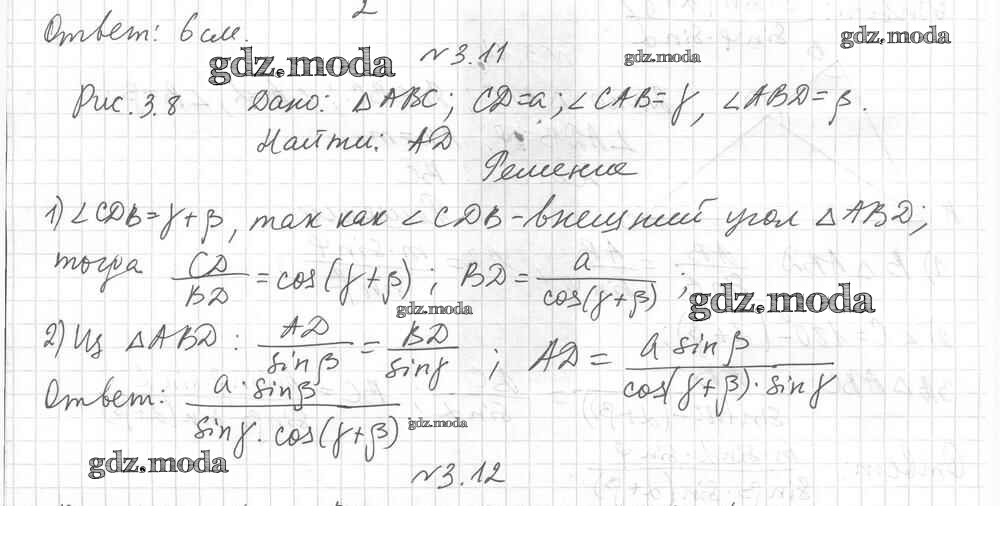 2
Ответ: 6 см.
gdz.moda gdz.moda gdz.moda
№3.11
Рис. 3.8 Дано: △ABC; CD=a; ∠CAB=γ, ∠ABD=β.
Найти: AD
Решение
1) ∠CDB=γ+β, так как ∠CDB-внешний угол △ABD;
тогда CD/BD = cos(γ+β); BD = a/cos(γ+β);
gdz.moda gdz.moda
2) Из △ABD: AD/sin β = BD/sin γ; AD = a sin β/cos(γ+β)·sin γ
Ответ: a·sin β/sin γ·cos(γ+β)
gdz.moda
gdz.moda
№3.12